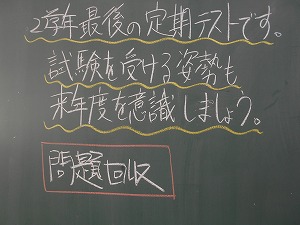 2学年最後の定期テストです。
試験を受ける姿勢も
来年度を意識しましょう。
問題回収